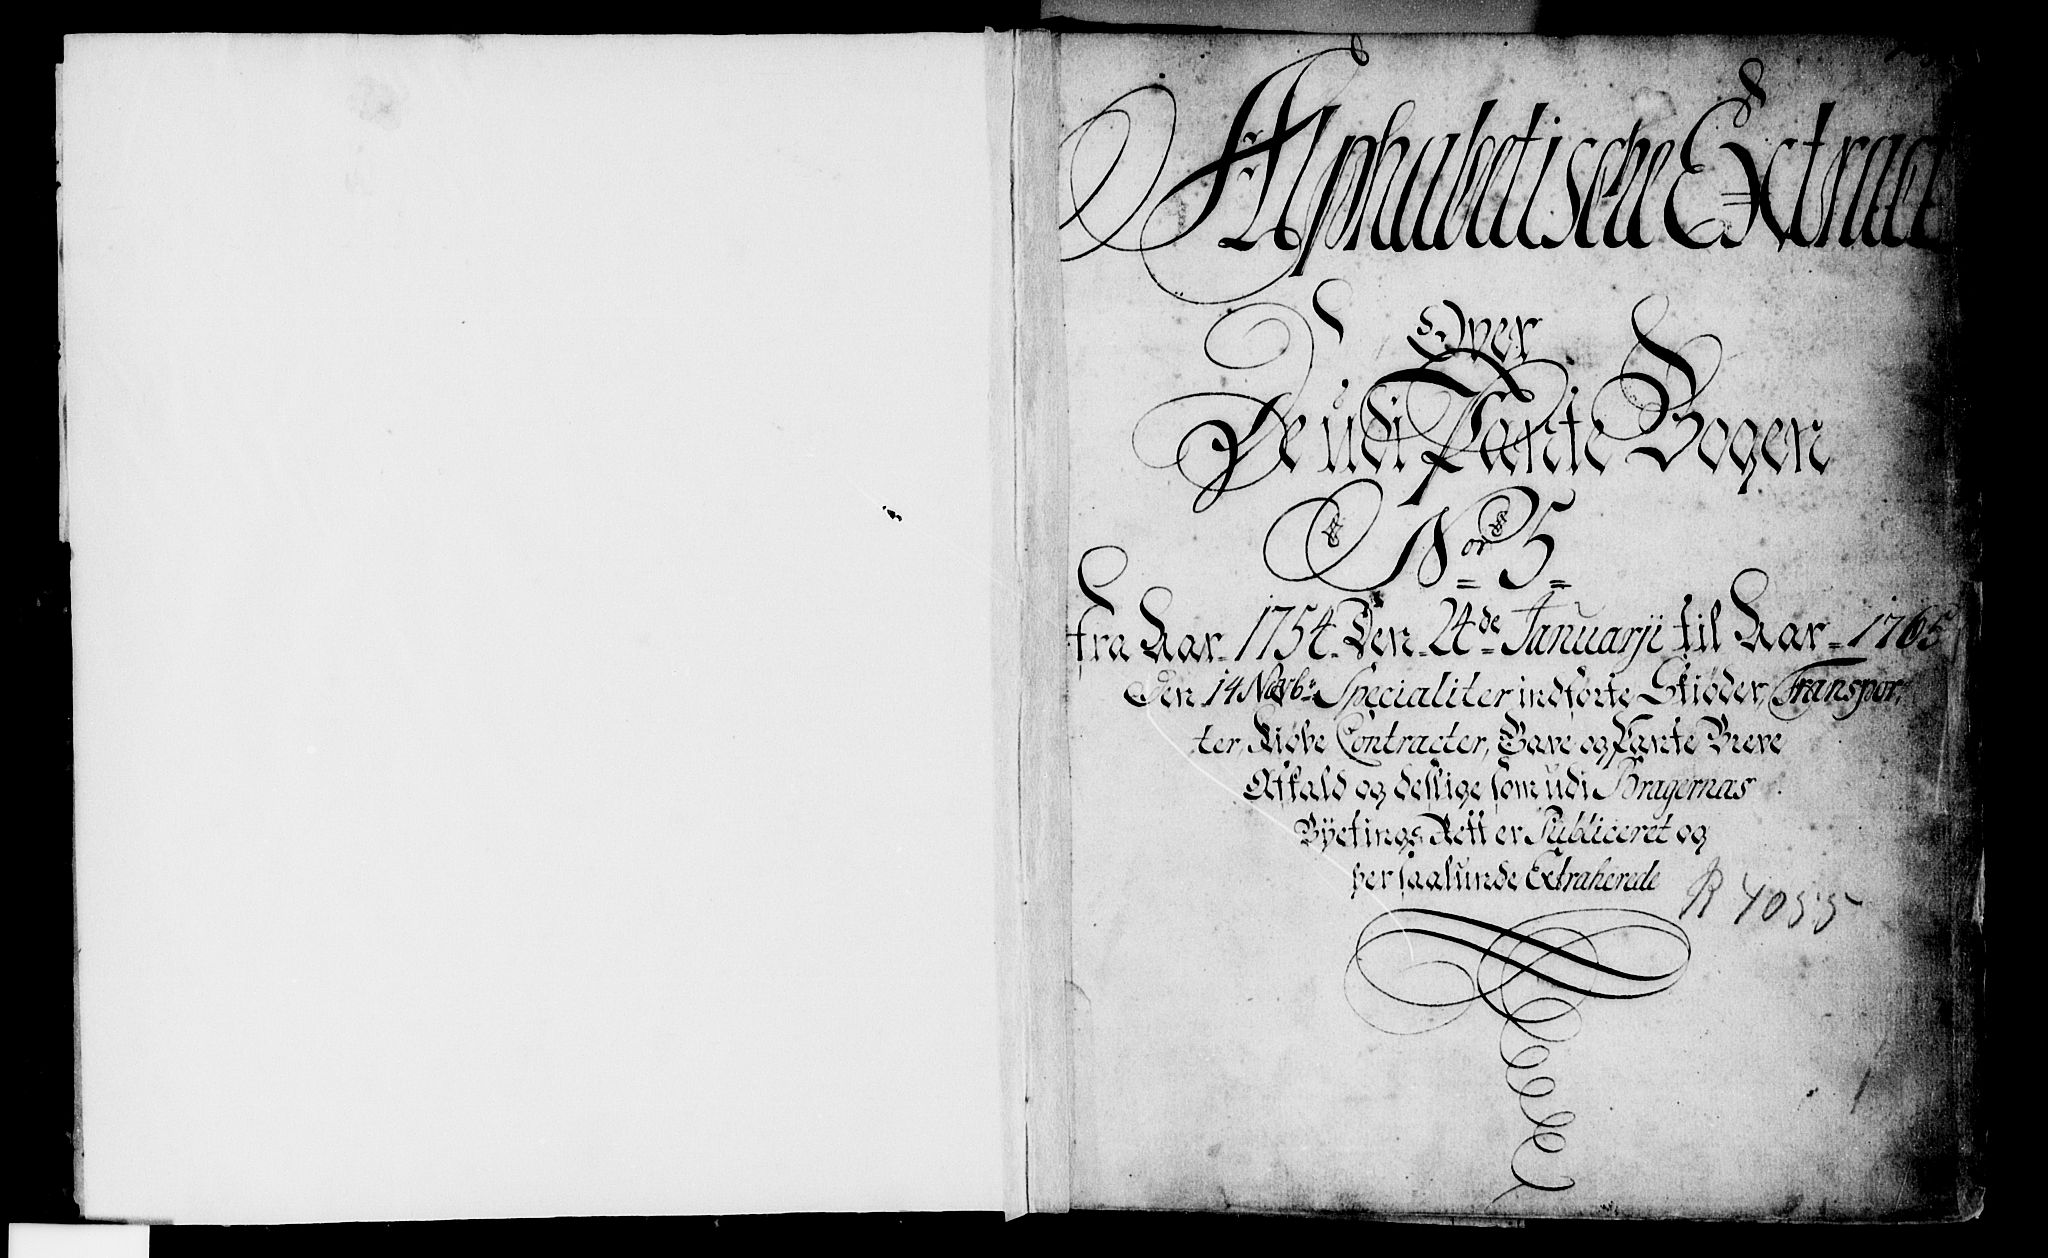 Alphabetische Extract
Over
De udi Pante Bogen
Nor 5
fra Aar 1754 Den 24de Januarji til Aar 1765
Den 14 Novbr Specialiter indførte Skiøder, Transpor-
ter, Kiøbe Contracter, Gave og Pante Breve
Afkald og deslige som udi Bragernas
Byetings Rett er Publiceret og
her saalunde Extraherede
R 4055
1